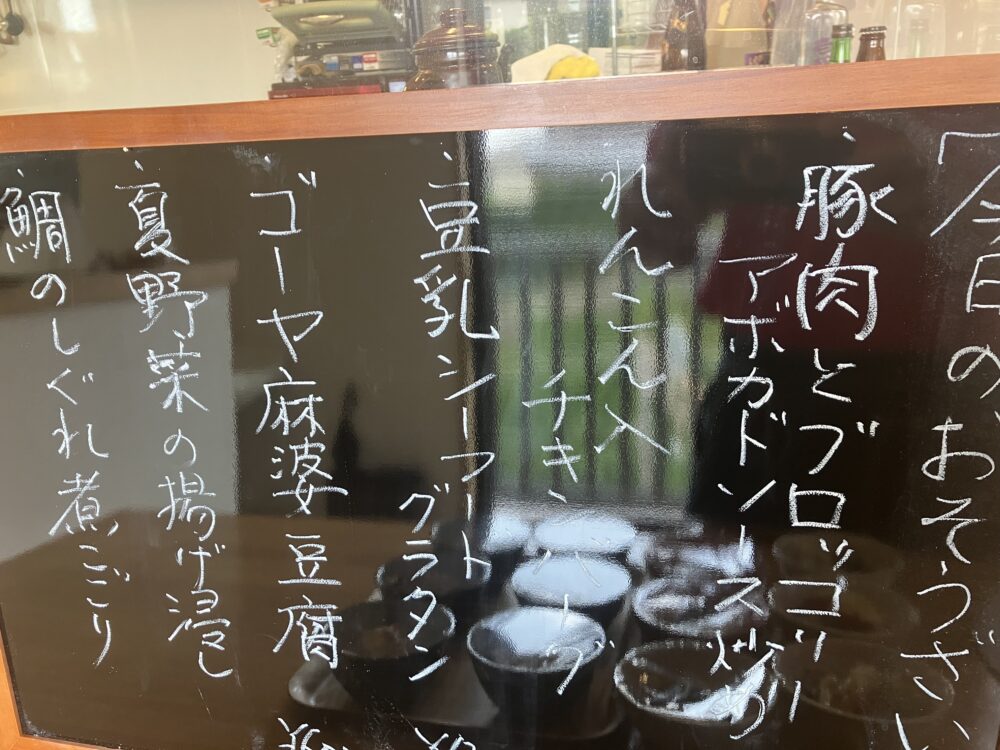 「今日のおそうざい
・豚肉とブロッコリー
アボカドソース炒め
・れんこん入
チキンバーグ
・豆乳シーフード
グラタン
・ゴーヤ麻婆豆腐
・夏野菜の揚げ浸し
・鯛のしぐれ煮ごごり